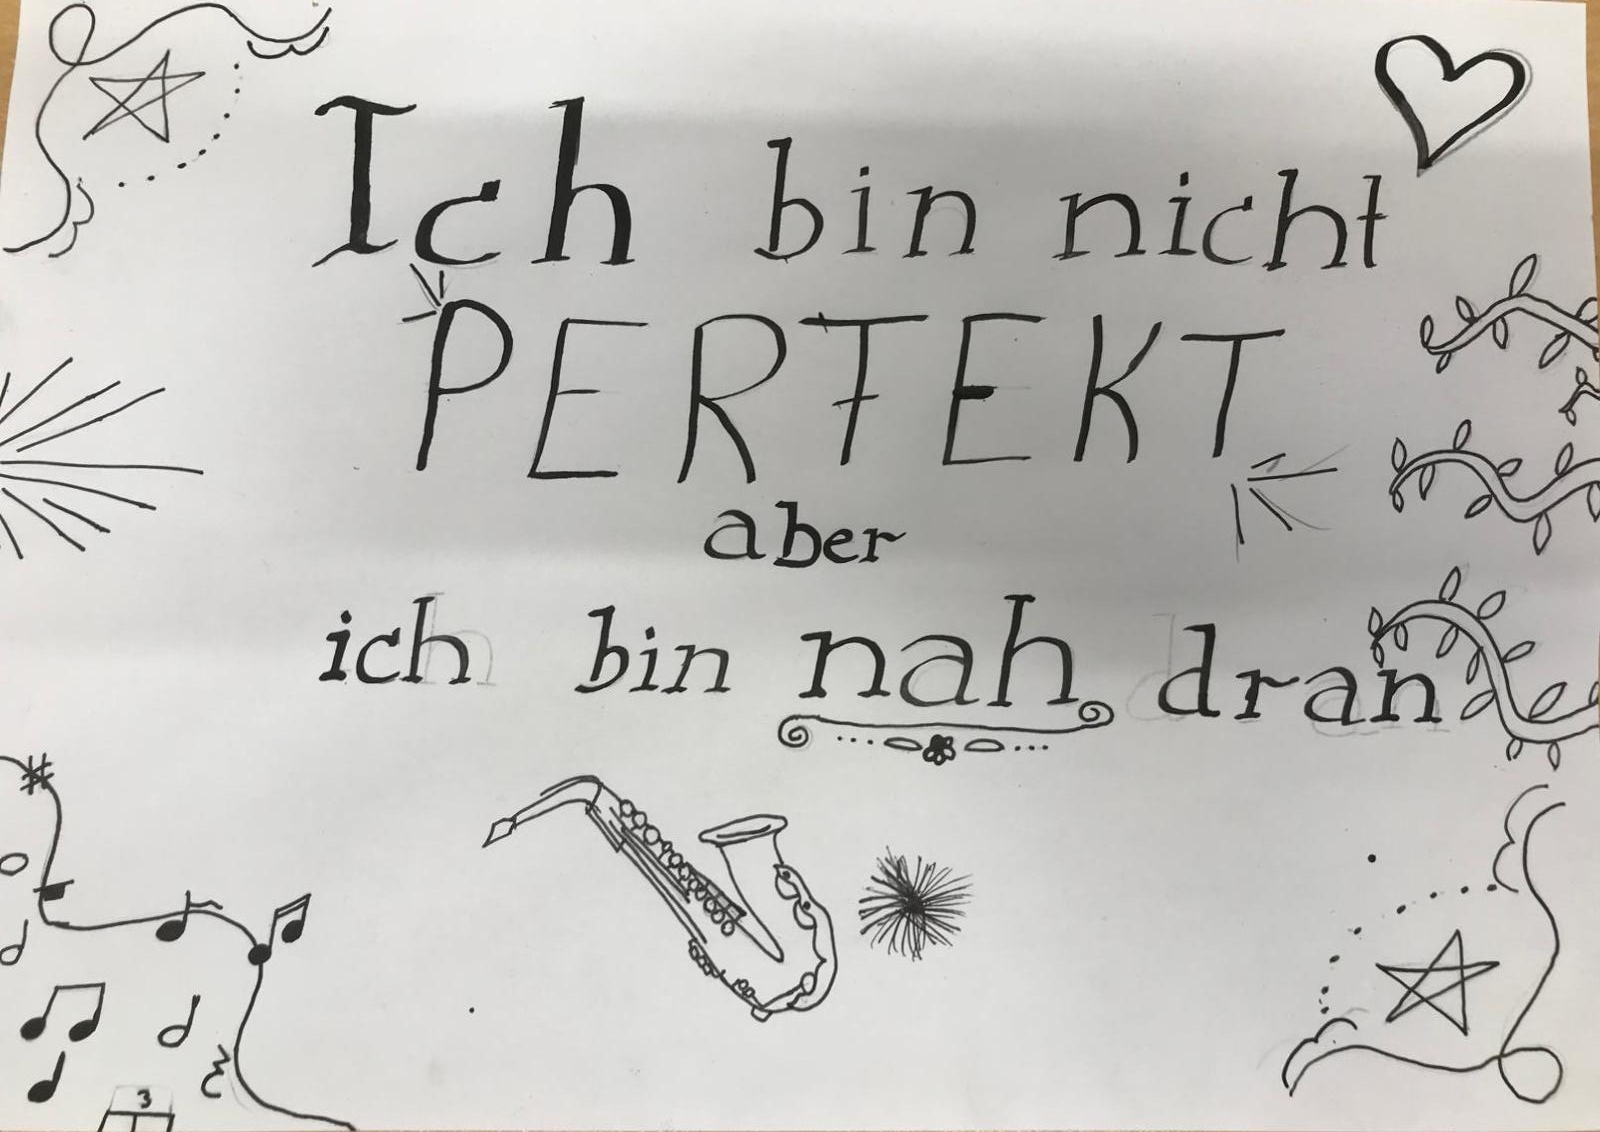 Ich bin nicht
PERFEKT
aber
ich bin nah dran
3